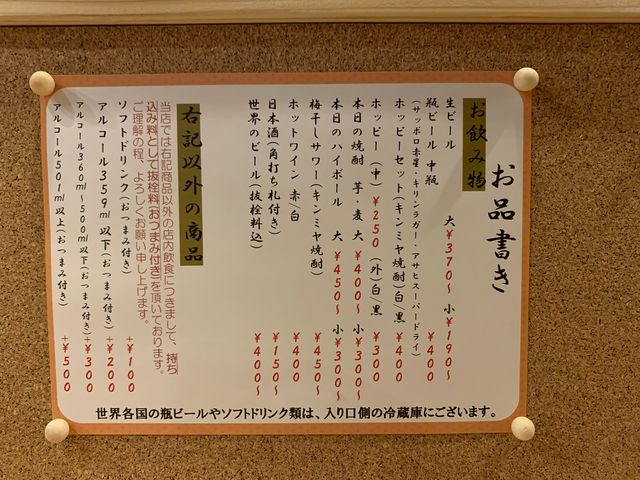 お品書き
お飲み物
生ビール 大¥370〜 小¥190〜
瓶ビール 中瓶 ¥400
(サッポロ赤星・キリンラガー・アサヒスーパードライ)
ホッピーセット(キンミヤ焼酎)白/黒 ¥400
ホッピー (中)¥250 (外)白/黒 ¥300
本日の焼酎 芋・麦 大¥400〜 小¥300〜
本日のハイボール 大¥450〜 小¥300〜
梅干しサワー(キンミヤ焼酎) ¥450〜
ホットワイン 赤/白 ¥400
日本酒(角打ち札付き) ¥150〜
世界のビール(抜栓料込) ¥400〜
右記以外の商品
当店では右記商品以外の店内飲食につきまして、持ち
込み料として抜栓料(おつまみ付き)を頂いております。
ご理解の程、よろしくお願い申し上げます。
ソフトドリンク(おつまみ付き) +¥100
アルコール359ml以下(おつまみ付き) +¥200
アルコール360ml〜500ml以下(おつまみ付き) +¥300
アルコール501ml以上(おつまみ付き) +¥500
世界各国の瓶ビールやソフトドリンク類は、入り口側の冷蔵庫にございます。